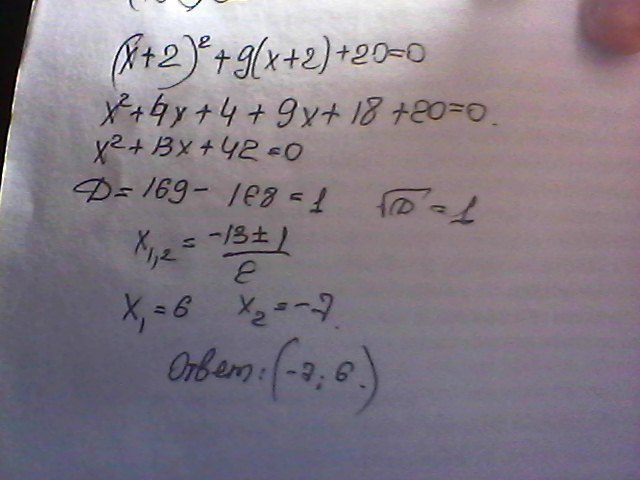 (x+2)² + 9(x+2) + 20 = 0
x² + 4x + 4 + 9x + 18 + 20 = 0.
x² + 13x + 42 = 0
D = 169 - 168 = 1 √D = 1
x₁,₂ = (-13 ± 1)/2
x₁ = 6 x₂ = -7.
Ответ: (-7; 6.)